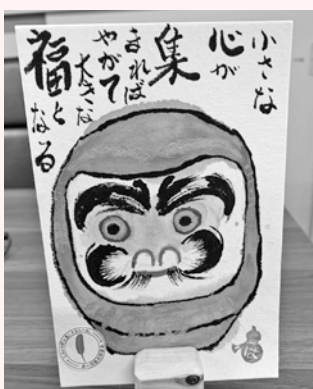 小さな
心が
集
まれば
やがて
大きな
福と
なる